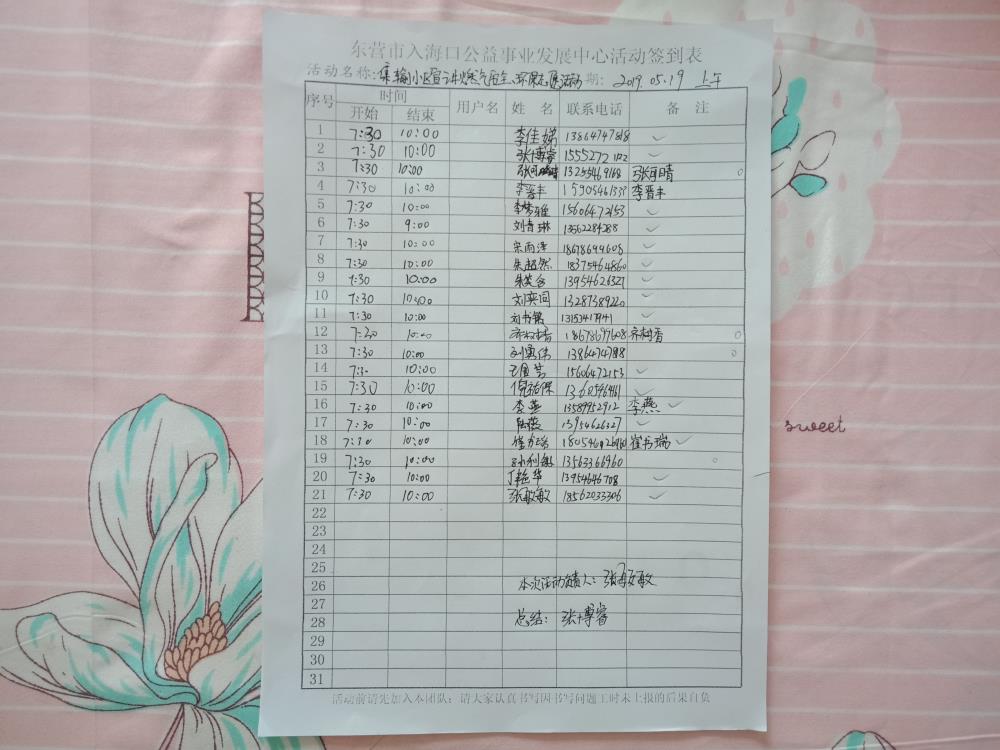 东营市入海口公益事业发展中心活动签到表
活动名称:集输小区宣讲燃气安全、环保志愿活动 期: 2019.05.19 上午
序号 时间 用户名 姓 名 联系电话 备 注
开始 结束
1 7:30 10:00 李佳娣 13864747818
2 7:30 10:00 张博睿
3 7:30 10:00 张可晴 13255469168 张可晴
4 7:30 10:00 李晋丰 李晋丰
5 7:30 10:00 李梦雅 15606472153
6 7:30 9:00 刘青琳 13562284288
7 7:30 10:00 宋雨泽 18678694608
8 7:30 10:00 朱超然 18375464860
9 7:30 10:00 朱笑含 13954626327
10 7:30 10:00 刘奕同 13287389220
11 7:30 10:00 刘书铭
12 7:20 10:00 18678697608
13 7:30 10:00
14 10:00 15606472153
15 7:30 10:00 倪祐保
16 7:30 10:00 李燕 13589952912 李燕
17 7:30 10:00 13954626327
18 7:30 10:00 崔书瑞
19 7:30 10:00 13563366960
20 7:30 10:00 丁艳华 13954646708
21 7:30 10:00 张敏敏 18562033306
22
23
24
25
26 本次活动负责人: 张敏敏
27
28 总结: 张博睿
29
30
31
活动前请先加入本团队; 请大家认真书写因书写问题工时未上报的后果自负
sweet